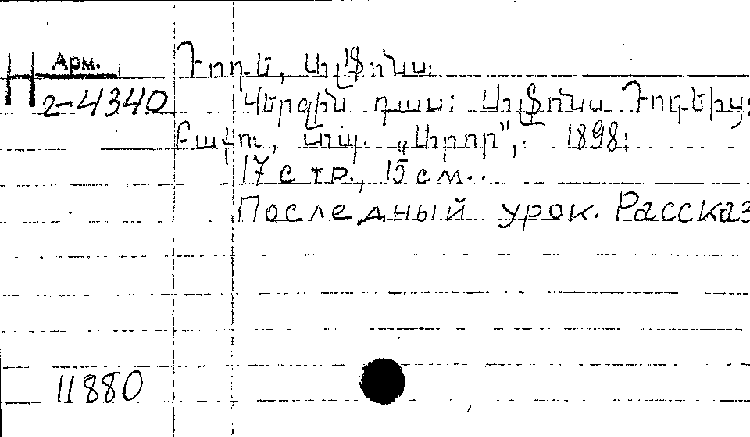 Арм.
H г-4340
Դոդե, Ալֆոնս:
Վերջին դաս: Ալֆոնս Դոդեից:
Բաքու, տպ. „Արոր", 1898:
17 стр., 15 см.
Последный урок. Рассказ
11880